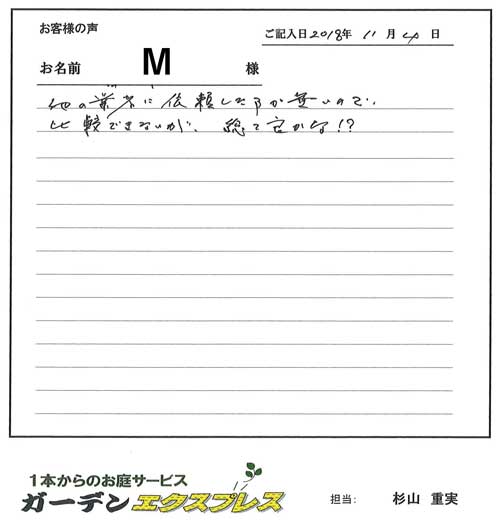 お客様の声
ご記入日2018年 11月 4日
お名前 M 様
他の業者に依頼した事が無いので、
比較できないが、総て
1本からのお庭サービス
ガーデンエクスプレス
担当: 杉山 重実